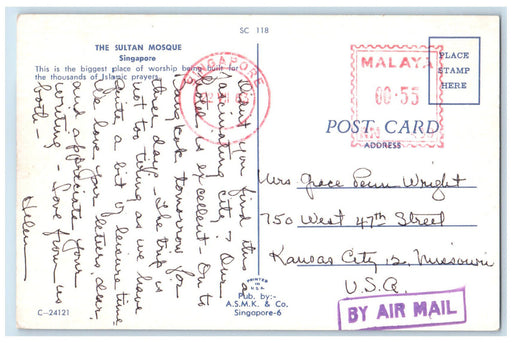 SC 118
THE SULTAN MOSQUE
Singapore
This is the biggest place of worship being built for
the thousands of Islamic prayers.
Didn't you find this a
fascinating city? Our
hotel is excellent - On to
Bangkok tomorrow for
three days - The trip is
not too tiring as we have
quite a bit of leisure time.
We love your letters, dear,
and appreciate your
writing - Love from us
both -
Helen
SINGAPORE
MALAYA
00·55
PLACE
STAMP
HERE
POST CARD
ADDRESS
Mrs Grace Penn Wright
750 West 47th Street
Kansas City 12, Missouri
U.S.A.
BY AIR MAIL
PRINTED
IN
U.S.A.
Pub. by:-
A.S.M.K. & Co.
Singapore-6
C-24121